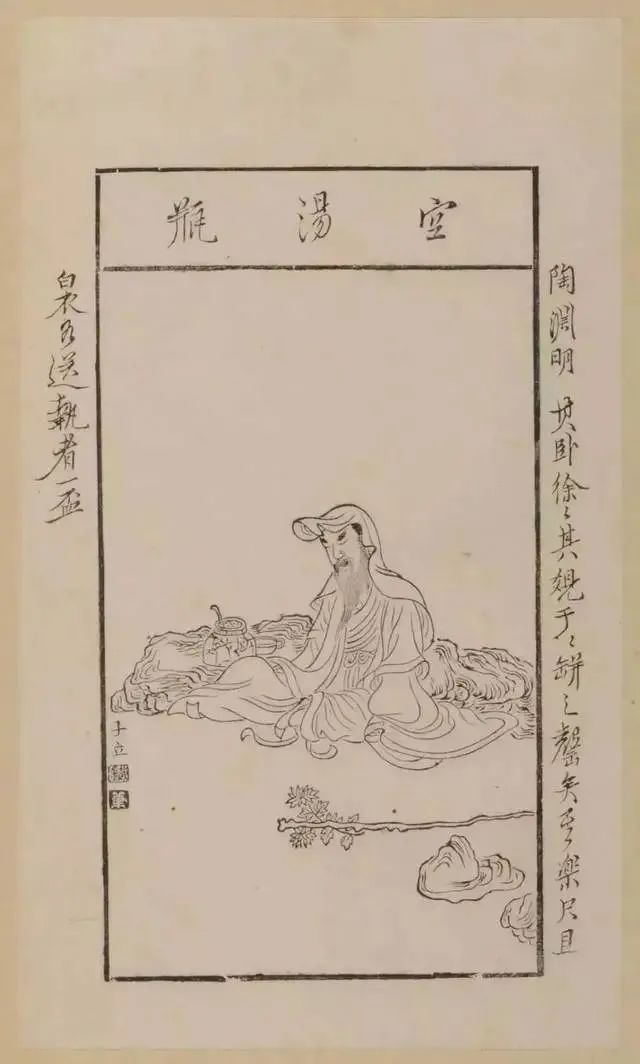 空湯瓶
陶淵明 其卧徐〻其覺于〻缾之罄矣其樂只且
白衣送執者一盃
子立